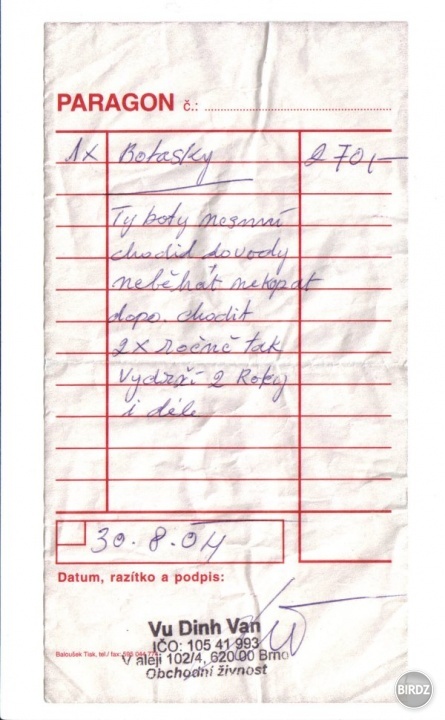 PARAGON č.:
1x Botasky 270,-
Ty boty nesmní
chodid do vody
neběhát nekopat
dopo. chodit
2x ročně tak
Vydrží 2 Roky
i déle
30.8.04
Datum, razítko a podpis:
Vu Dinh Van
IČO: 105 41 993
Baloušek Tisk, tel./ fax:
V aleji 102/4, 620 00 Brno
Obchodní živnost
BIRDZ